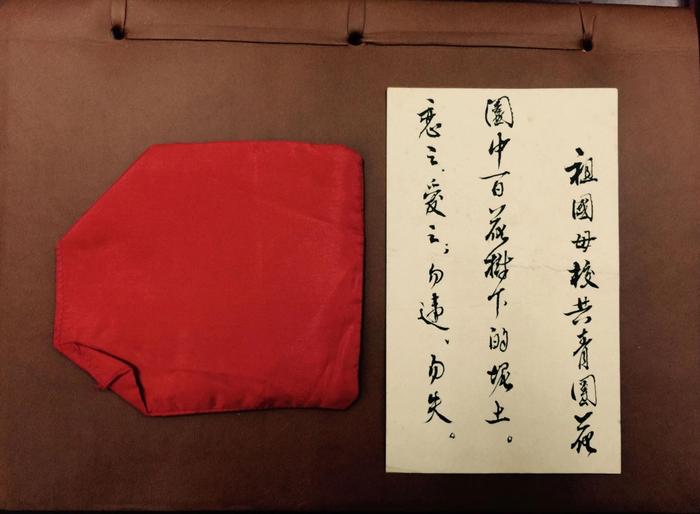 祖國母校共青團花
園中百花樹下的坭土。
恋之、愛之；勿違、勿失。